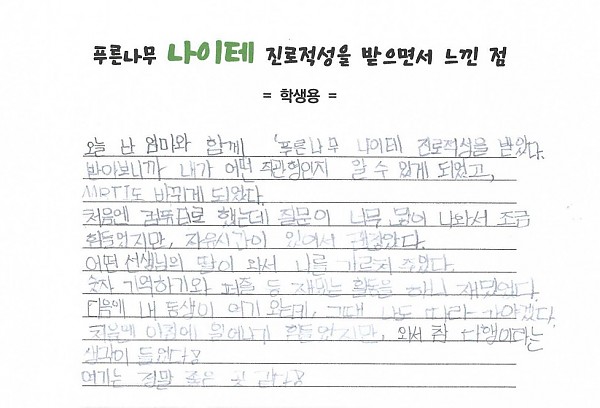 푸른나무 나이테 진로적성을 받으면서 느낀 점
= 학생용 =
오늘 난 엄마와 함께 '푸른나무 나이테 진로적성을 받았다.
받아보니까 내가 어떤 직관형인지 알 수 있게 되었고,
MBTI도 바뀌게 되었다.
처음엔 컴퓨터로 했는데 질문이 너무 많이 나와서 조금
힘들었지만, 자유시간이 있어서 괜찮았다.
어떤 선생님의 딸이 와서 나를 가르쳐 주었다.
숫자 기억하기와 퍼즐 등 재밌는 활동을 하니 재밌었다.
다음에 내 동생이 여기 오는데, 그때 나도 따라 가야겠다.
처음엔 아침에 일어나기 힘들었지만, 와서 참 다행이다라는
생각이 들었다
여기는 정말 좋은 곳 같다